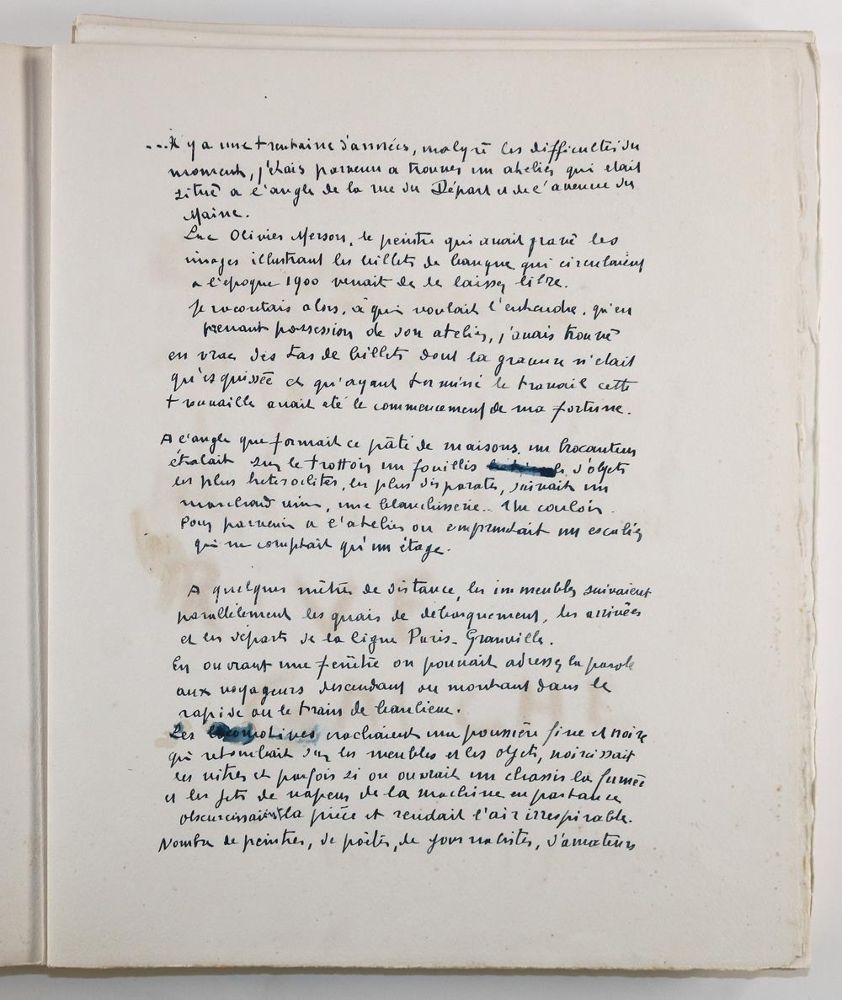 ...Il y a une trentaine d'années, malgré les difficultés du
moment, j'étais parvenu a trouver un atelier qui etait
situé a l'angle de la rue du Départ et de l'avenue du
Maine.
Luc Olivier Merson, le peintre qui avait gravé les
images illustrant les billets de banque qui circulaient
a l'epoque 1900 venait de le laisser libre.
Je racontais alors, à qui voulait l'entendre, qu'en
prenant possession de son atelier, j'avais trouvé
en vrac des tas de billets dont la gravure n'etait
qu'esquissée et qu'ayant terminé le travail cette
trouvaille avait eté le commencement de ma fortune.
A l'angle que formait ce pâté de maisons, un brocanteur
étalait sur le trottoir un fouillis d'objets
les plus heteroclites, les plus disparates, suivait un
marchand vins, une blanchisserie.. Un couloir.
Pour parvenir a l'atelier on empruntait un escalier
qui ne comptait qu'un étage.
A quelques mètres de distance, les immeubles suivaient
parallèlement les quais de debarquement, les arrivées
et les départs de la ligne Paris-Granville.
En ouvrant une fenêtre on pouvait adresser la parole
aux voyageurs descendant ou montant dans le
rapide ou le train de banlieue.
Les locomotives crachaient une poussière fine et noire
qui retombait sur les meubles et les objets, noircissait
les vitres et parfois si on ouvrait un chassis la fumée
et les jets de vapeur de la machine en partance
obscurcissaient la pièce et rendait l'air irrespirable.
Nombre de peintres, de poètes, de journalistes, d'amateurs